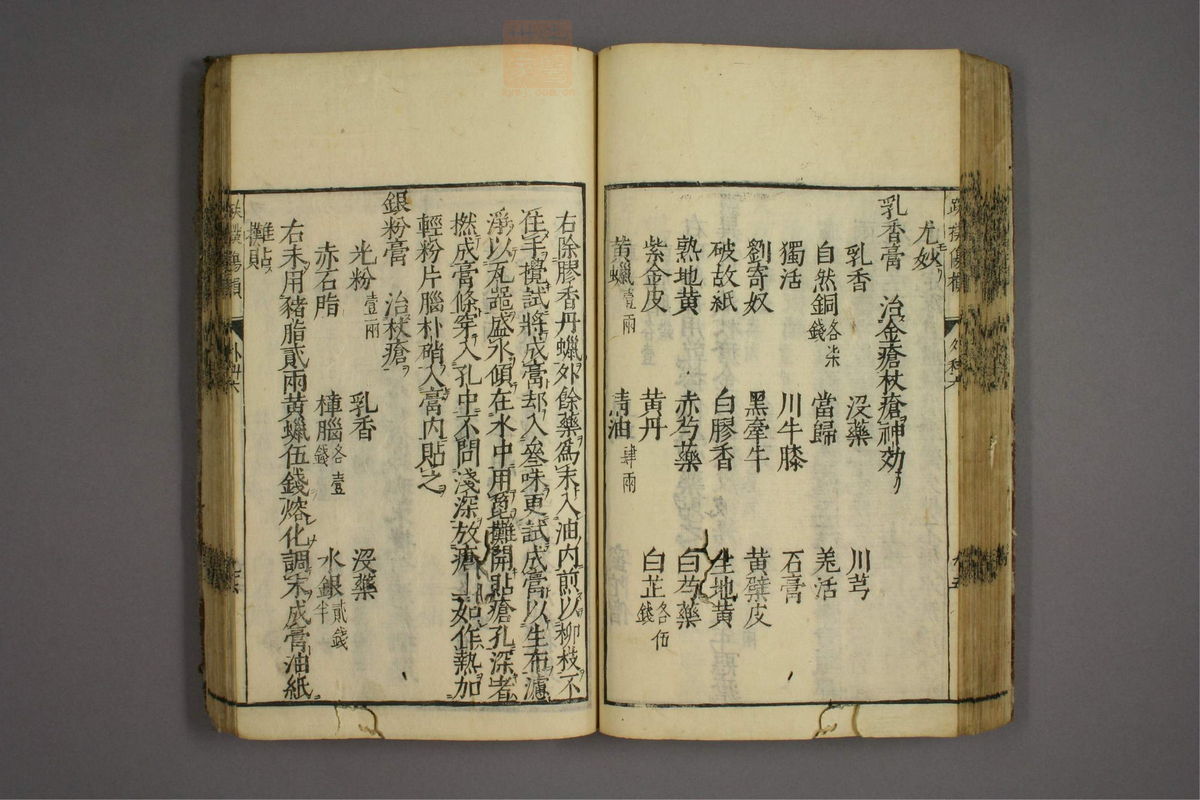 尤妙
乳香膏 治金瘡杖瘡神効
乳香 沒藥 川芎
自然銅各柒錢 當歸 羌活
獨活 川牛膝 石膏
劉寄奴 黑牽牛 黃檗皮
破故紙 白膠香 生地黃
熟地黃 赤芍藥 白芍藥
紫金皮 黃丹 白芷各伍錢
黃蠟壹兩 清油肆兩
右除膠香丹蠟外餘藥爲末入油內煎以柳枝不
住手攪試將成膏却入叄味更試成膏以生布濾
淨以瓦器盛水傾在水中用篦攤開貼瘡孔深者
撚成膏條穿入孔中不問淺深放瘡上如作熱加
輕粉片腦朴硝入膏內貼之
銀粉膏 治杖瘡
光粉壹兩 乳香 沒藥
赤石脂 樟腦各壹錢 水銀貳錢半
右末用豬脂貳兩黃蠟伍錢熔化調末成膏油紙
攤貼